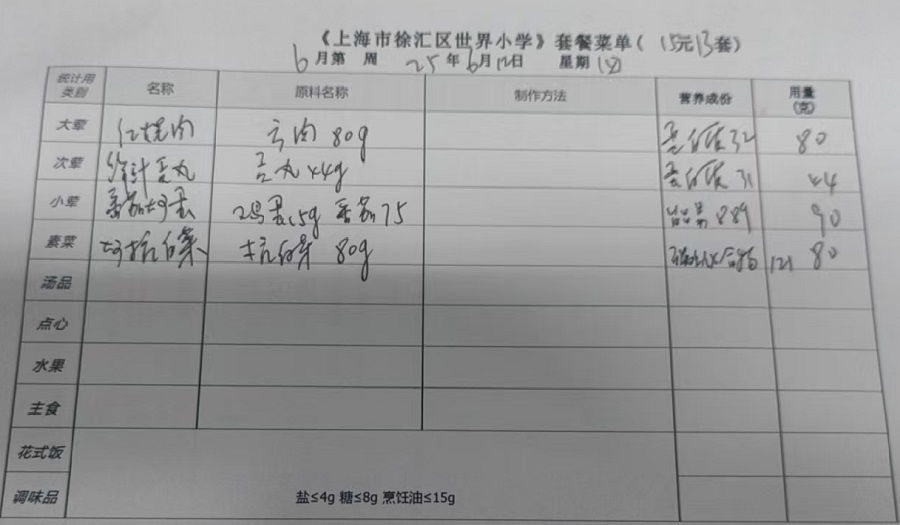 《上海市徐汇区世界小学》套餐菜单( 15元13套)
6月第 周 25年6月12日 星期四
统计用类别 名称 原料名称 制作方法 营养成份 用量(克)
大荤 红烧肉 方肉 80g 蛋白质 32 80
次荤 汁蛋丸 丸 44g 蛋白质 31 44
小荤 番茄炒蛋 鸡蛋15g 番茄75 889 90
素菜 炒杭白菜 杭白菜 80g 121 80
汤品
点心
水果
主食
花式饭
调味品 盐≤4g 糖≤8g 烹饪油≤15g